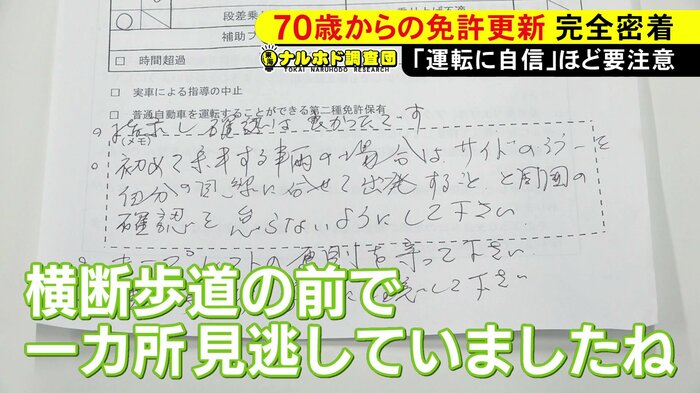 70歳からの免許更新 完全密着
「運転に自信」ほど要注意
東海
ナルホド調査団
TOKAI NARUHODO RESEARCH
段差乗
補助ブ
時間超過
実車による指導の中止
普通自動車を運転することができる第二種免許保有
(メモ)
確認は良かったです
初めて乗車する車両の場合は、サイドのミラーを
自分の目線に合せて出発すること、と周囲の
確認を怠らないようにして下さい
の原則を守って下さい
して下さい
横断歩道の前で
一カ所見逃していましたね